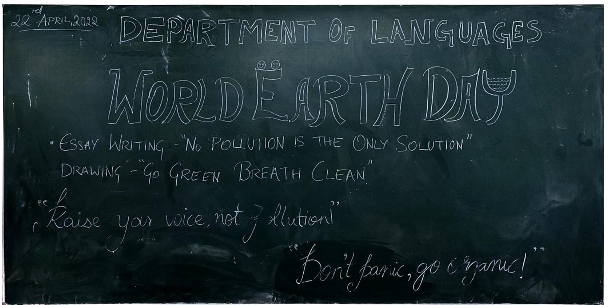 22nd April, 2022
DEPARTMENT OF LANGUAGES
WORLD EARTH DAY
• ESSAY WRITING - "No POLLUTION IS THE ONLY SOLUTION"
DRAWING - "GO GREEN BREATH CLEAN"
"Raise your voice, not
"Don't panic, go organic!"